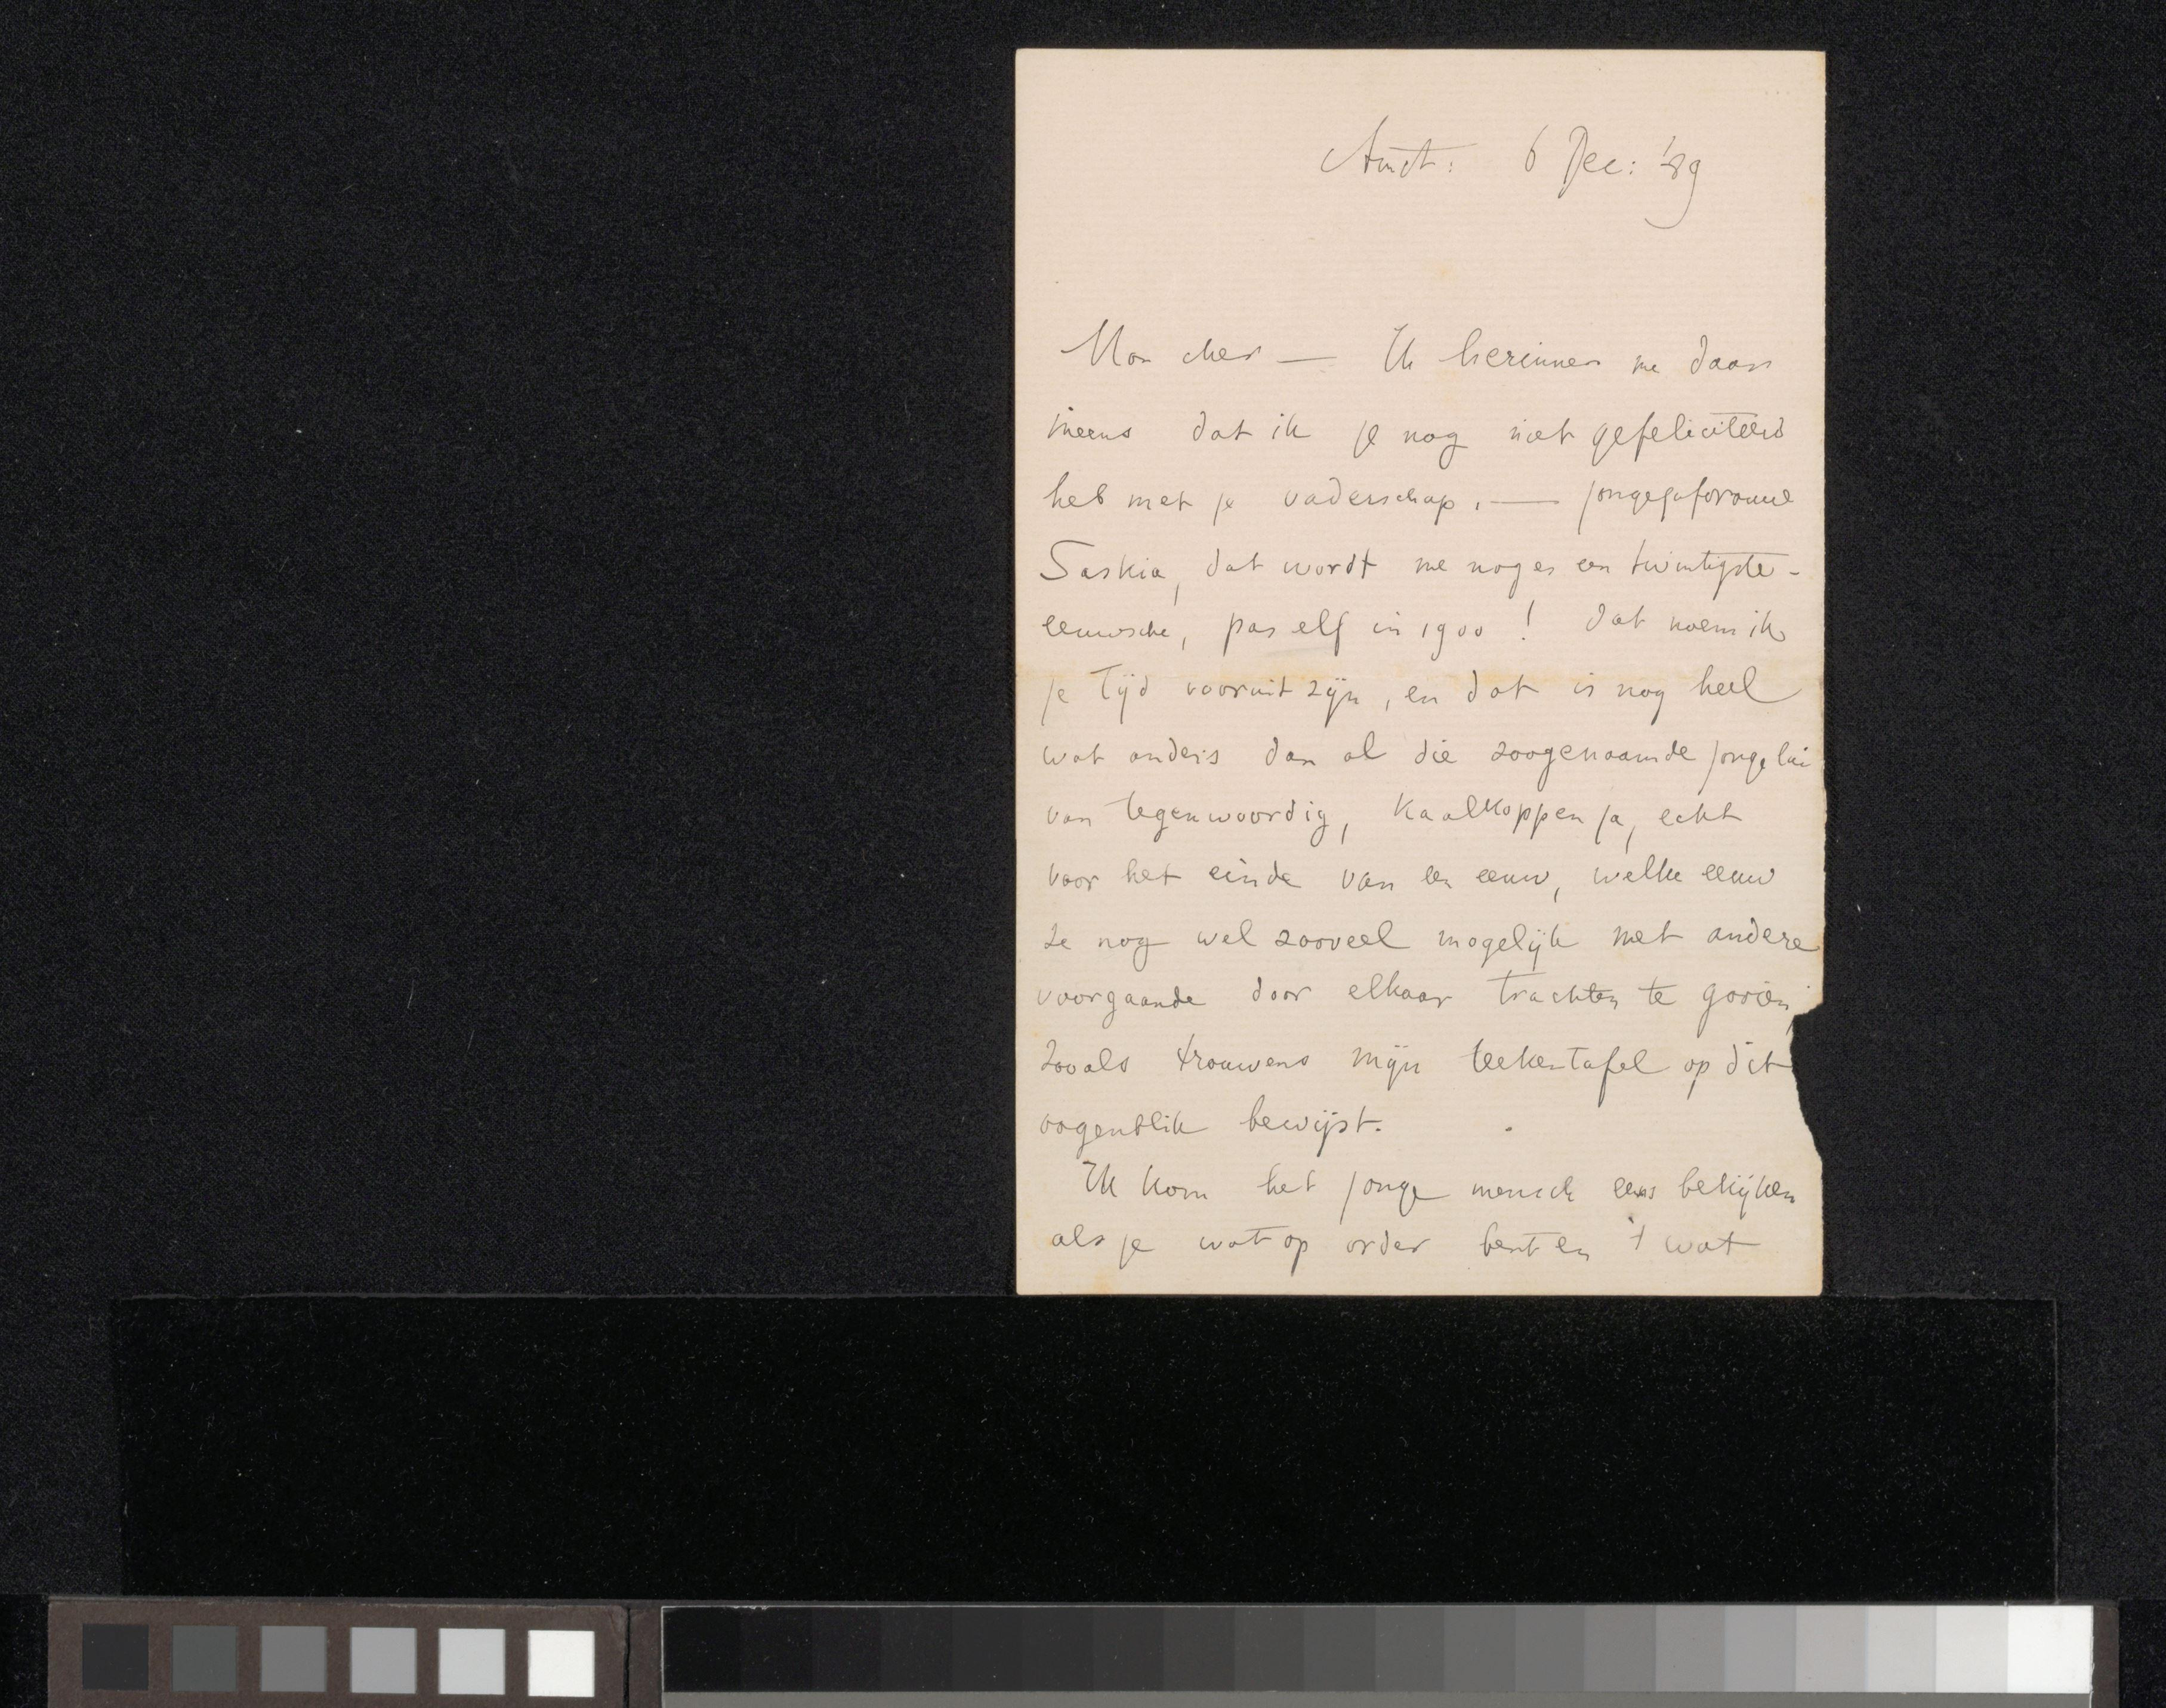 Amst: 6 Dec: '89
Mon cher — Ik herinner me daar
ineens dat ik je nog niet gefeliciteerd
heb met je vaderschap. — jongejufvrouw
Saskia, dat wordt me nog es een twintigste-
eeuwsche, pas elf in 1900! dat noem ik
je tijd vooruit zijn, en dat is nog heel
wat anders dan al die zoogenaamde jongelui
van tegenwoordig, kaalkoppen ja, echt
voor het einde van een eeuw, welke eeuw
ze nog wel zooveel mogelijk met andere
voorgaande door elkaar trachten te gooien,
zooals trouwens mijn teekentafel op dit
oogenblik bewijst.
Ik kom het jonge mensch eens bekijken
als je wat op order bent en 't wat